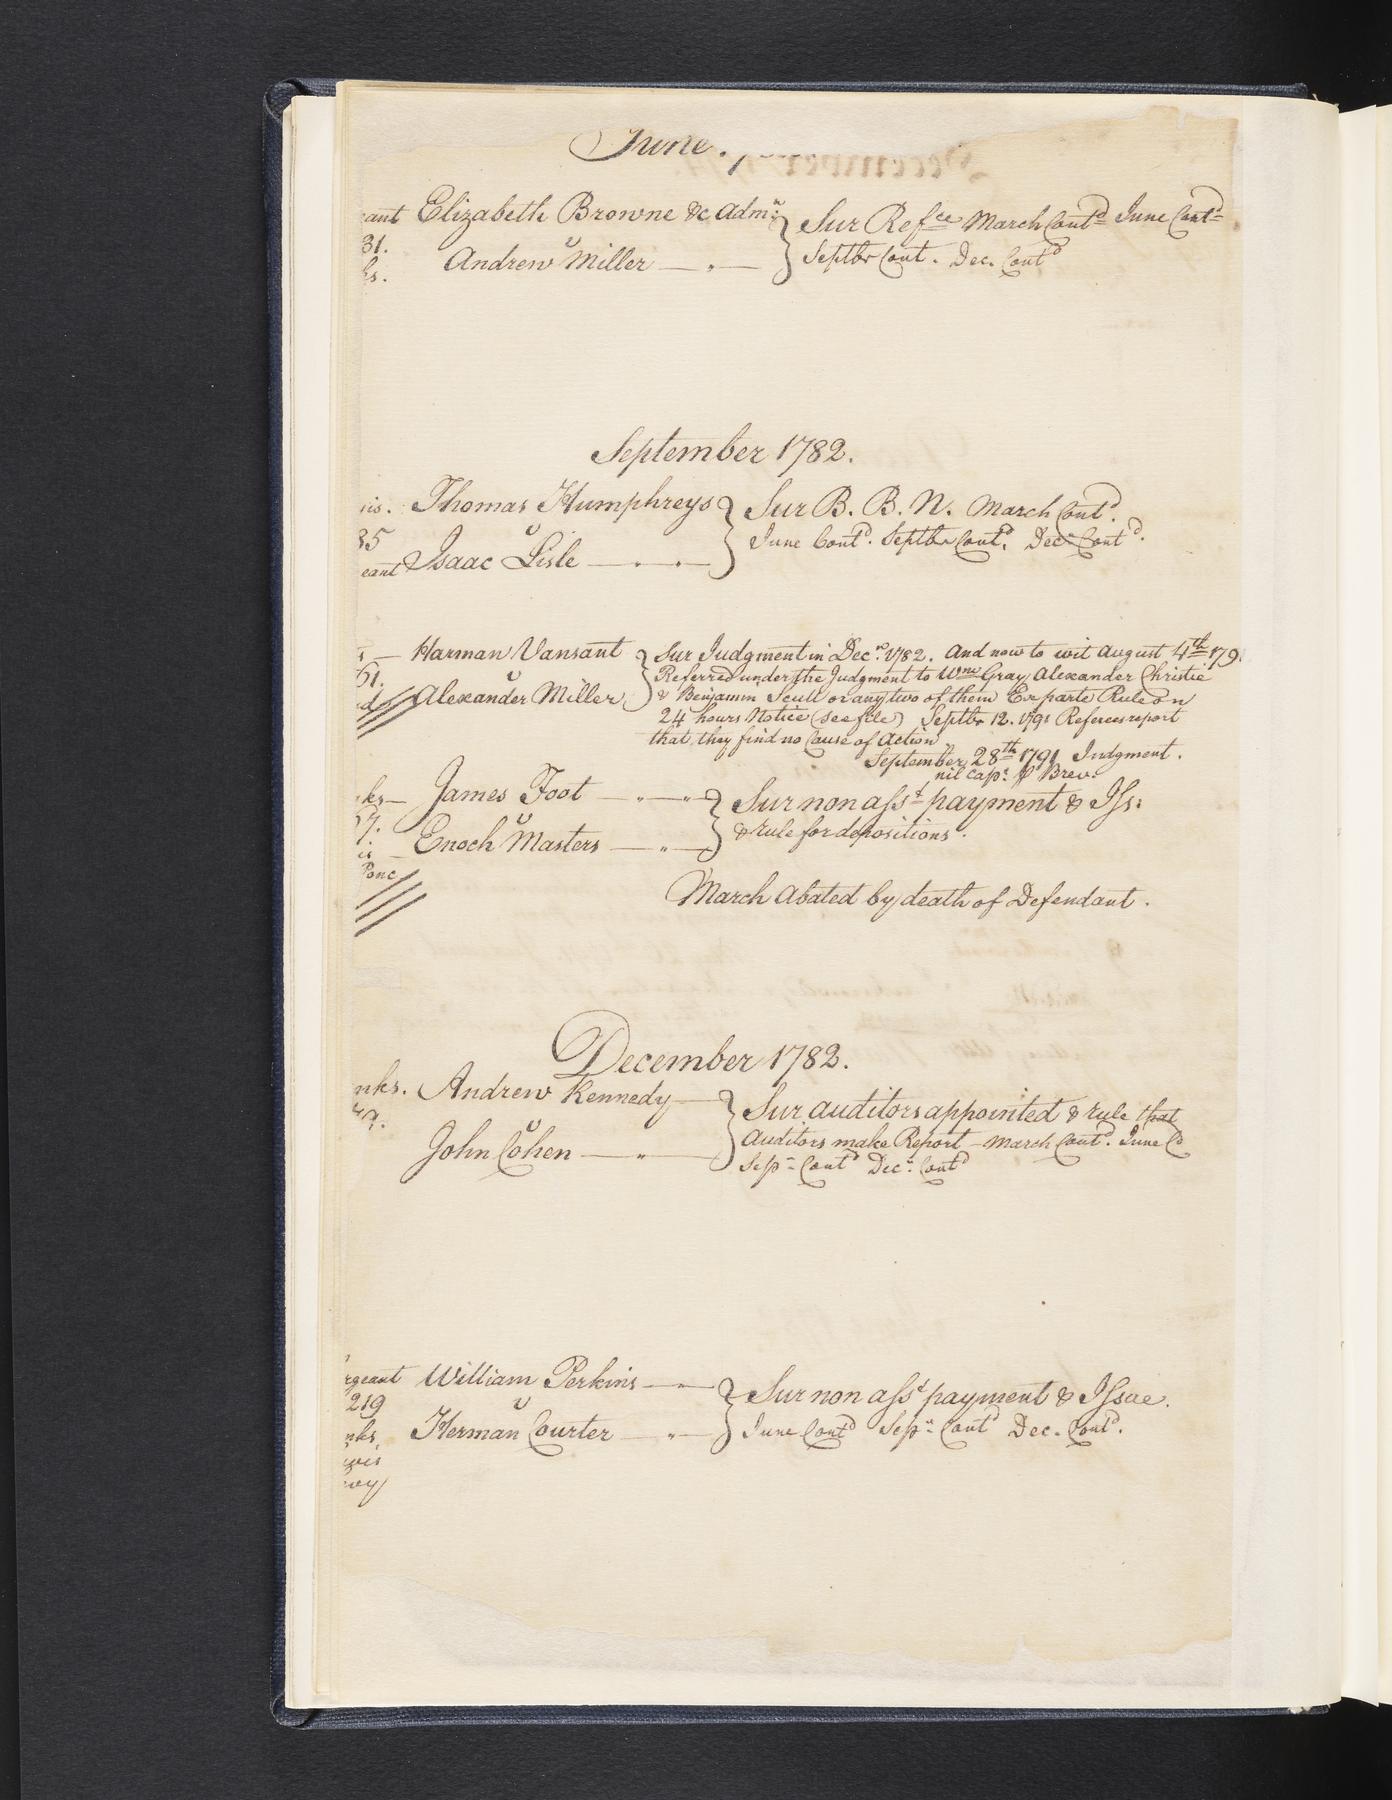 June.
ant Elizabeth Browne &c Admx Sur Refce March Contd June Contd
31. v
ks. Andrew Miller Septbr Cont. Dec. Contd
September 1782.
is. Thomas Humphreys Sur B. B. N. March Contd.
35 v June Contd. Septbr Contd. Decr Contd.
eant Isaac Lisle
Harman Vansant Sur Judgment in Decr. 1782. And now to wit August 4th 179
61. v Referred under the Judgment to Wm Gray Alexander Christie
d Alexander Miller & Benjamin Scull or any two of them Ex parte Rule on
24 hours Notice (see file) Septbr 12. 1791 Referees report
that they find no Cause of Action
September 28th 1791 Judgment.
nil capt. p Brev:
ks James Foot Sur non asst payment & Iss:
7. v & rule for depositions.
is Enoch Masters
Ponc
March Abated by death of Defendant.
December 1782.
nks. Andrew Kennedy Sur auditors appointed & rule that
v Auditors make Report March Contd. June Cd
John Cohen Sepr Contd Decr. Contd
rgeant William Perkins Sur non asst payment & Issue.
219 v
nks, Herman Courter June Contd Sepr Contd Dec. Contd.
wis